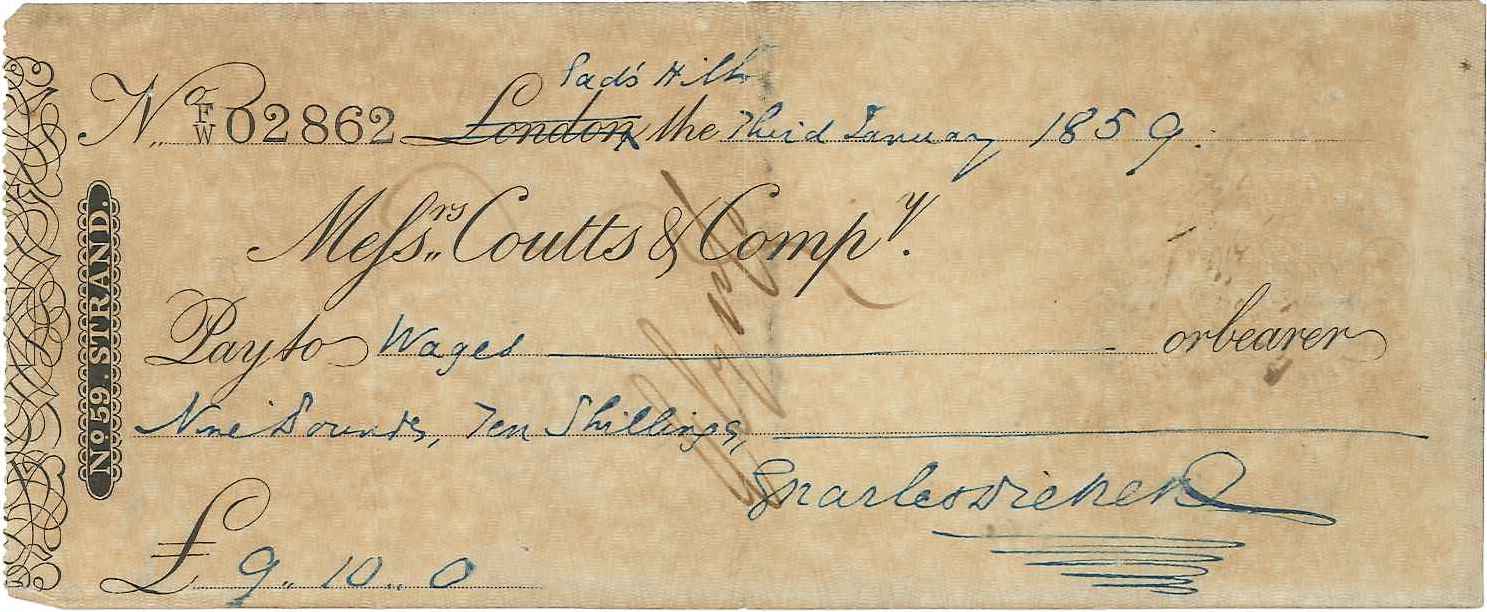 Gad's Hill
No. F/W 02862 London the Third January 1859.
Messrs. Coutts & Compy.
Pay to Wages or bearer
Nine Pounds, Ten Shillings,
Charles Dickens
£ 9 .. 10 .. 0
No 59. STRAND.